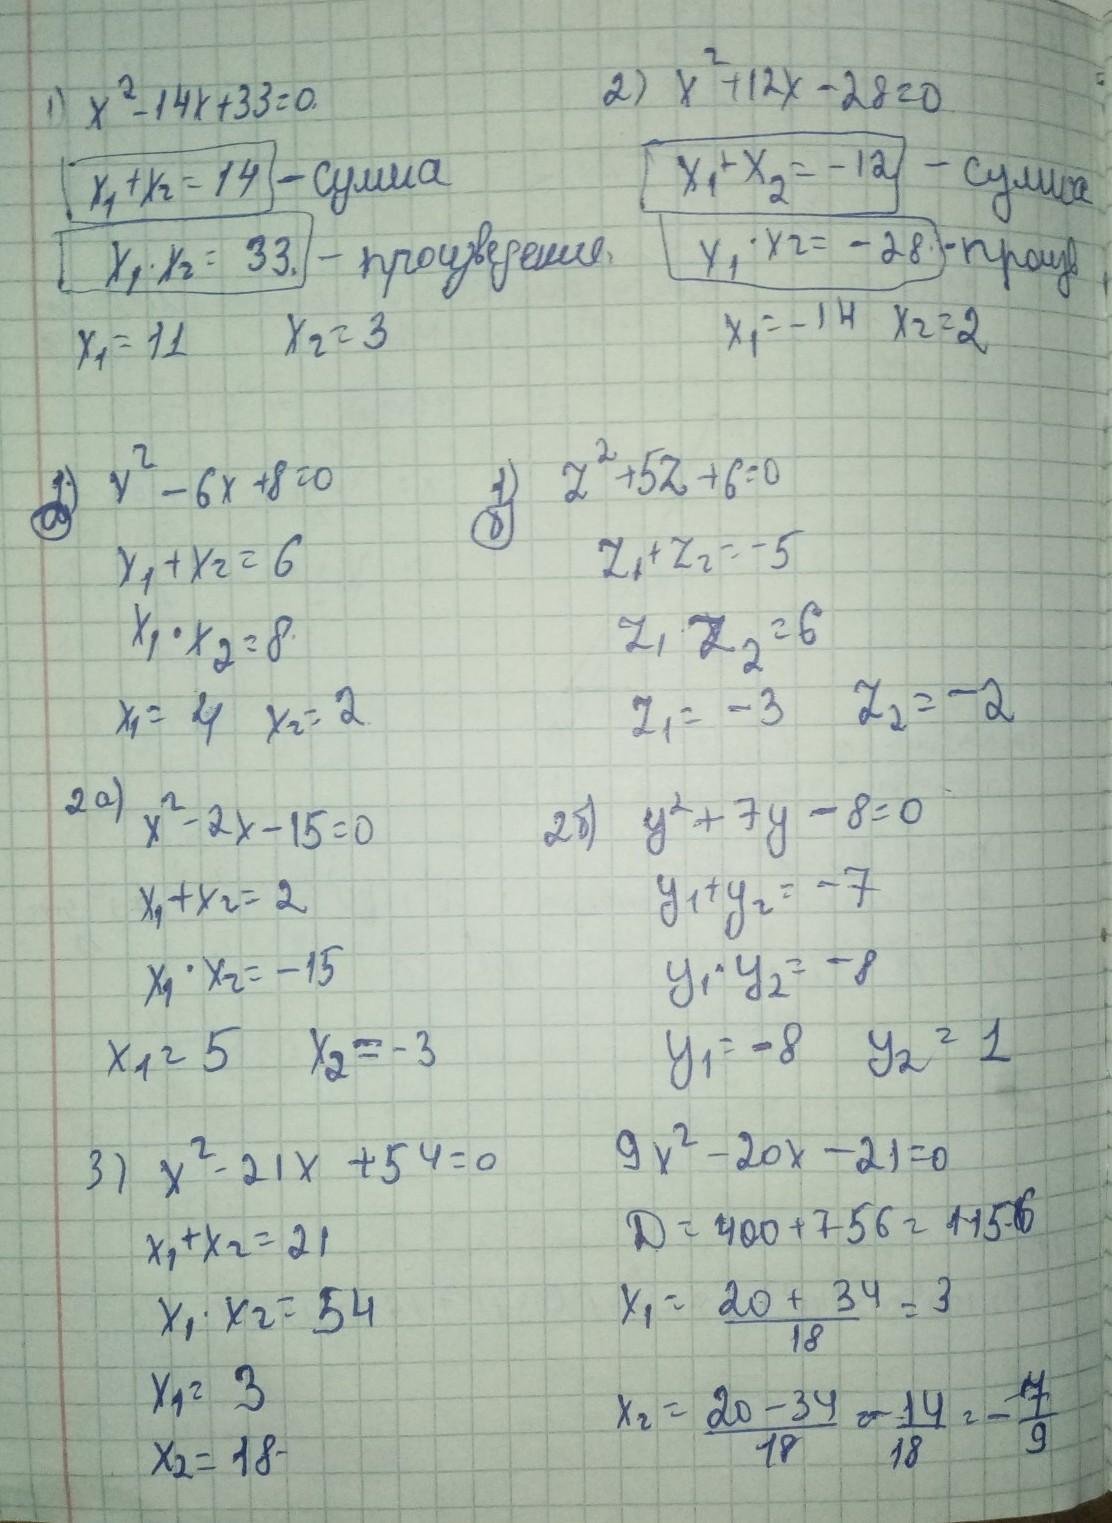 1) x²-14x+33=0.
x₁+x₂=14 - сумма
x₁·x₂=33. - произведение.
x₁=11 x₂=3
2) x²+12x-28=0
x₁+x₂=-12 - сумма
x₁·x₂=-28.-произв
x₁=-14 x₂=2
1) а x²-6x+8=0
x₁+x₂=6
x₁·x₂=8.
x₁=4 x₂=2
1) б z²+5z+6=0
z₁+z₂=-5
z₁·z₂=6
z₁=-3 z₂=-2
2а) x²-2x-15=0
x₁+x₂=2
x₁·x₂=-15
x₁=5 x₂=-3
2б) y²+7y-8=0
y₁+y₂=-7
y₁·y₂=-8
y₁=-8 y₂=1
3) x²-21x+54=0
x₁+x₂=21
x₁·x₂=54
x₁=3
x₂=18
9x²-20x-21=0
D=400+756=1156
x₁=(20+34)/18=3
x₂=(20-34)/18=-14/18=-7/9